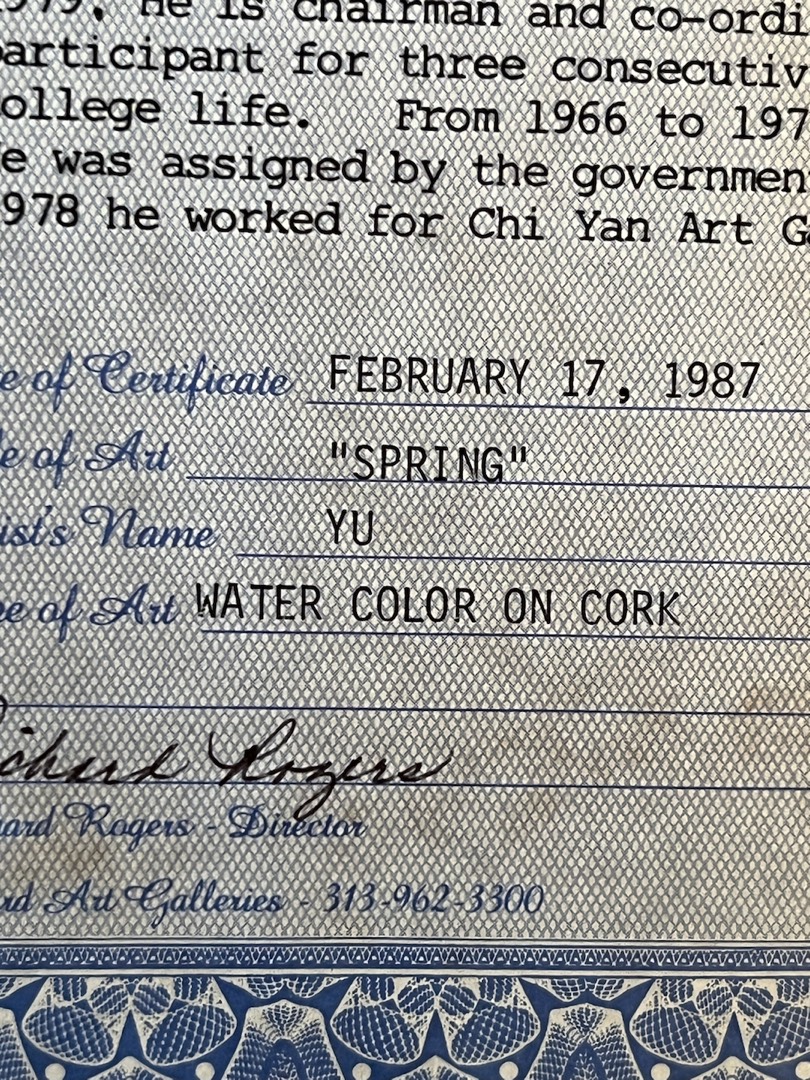 1979. He is chairman and co-ordi
articipant for three consecutiv
ollege life. From 1966 to 197
e was assigned by the governmen
978 he worked for Chi Yan Art G
e of Certificate FEBRUARY 17, 1987
le of Art "SPRING"
ist's Name YU
pe of Art WATER COLOR ON CORK
Richard Rogers
ard Rogers - Director
Art Galleries - 313-962-3300